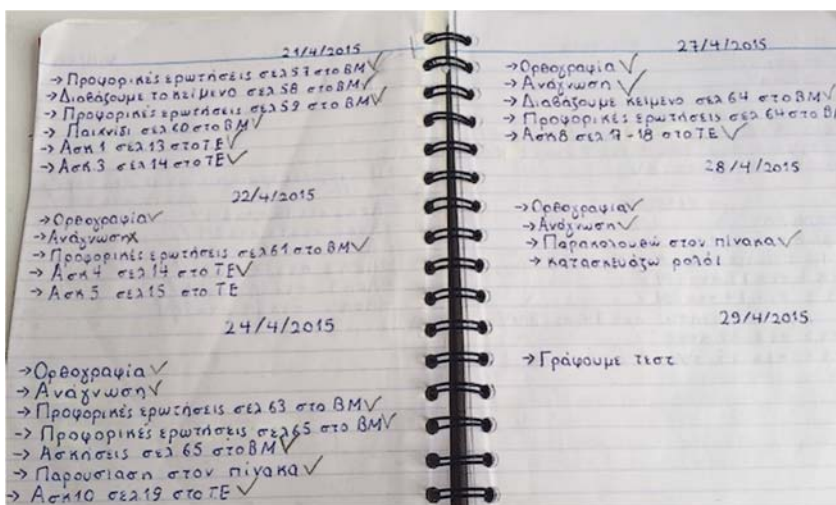 21/4/2015
→ Προφορικές ερωτήσεις σελ 57 στο ΒΜ ✓
→ Διαβάζουμε το κείμενο σελ 58 στο ΒΜ ✓
→ Προφορικές ερωτήσεις σελ 59 στο ΒΜ ✓
→ Παιχνίδι σελ 60 στο ΒΜ ✓
→ Ασκ 1 σελ 13 στο ΤΕ ✓
→ Ασκ 3 σελ 14 στο ΤΕ ✓
22/4/2015
→ Ορθογραφία ✓
→ Ανάγνωση x
→ Προφορικές ερωτήσεις σελ 61 στο ΒΜ ✓
→ Ασκ 4 σελ 14 στο ΤΕ ✓
→ Ασκ 5 σελ 15 στο ΤΕ
24/4/2015
→ Ορθογραφία ✓
→ Ανάγνωση ✓
→ Προφορικές ερωτήσεις σελ 63 στο ΒΜ ✓
→ Προφορικές ερωτήσεις σελ 65 στο ΒΜ ✓
→ Ασκήσεις σελ 65 στο ΒΜ ✓
→ Παρουσίαση στον πίνακα ✓
→ Ασκ 10 σελ 19 στο ΤΕ ✓
27/4/2015
→ Ορθογραφία ✓
→ Ανάγνωση ✓
→ Διαβάζουμε κείμενο σελ 64 στο ΒΜ ✓
→ Προφορικές ερωτήσεις σελ 64 στο ΒΜ
→ Ασκ 8 σελ 17-18 στο ΤΕ ✓
28/4/2015
→ Ορθογραφία ✓
→ Ανάγνωση ✓
→ Παρακολουθώ στον πίνακα ✓
→ κατασκευάζω ρολόι
29/4/2015
→ Γράφουμε τεστ